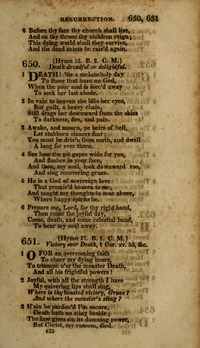 RESURRECTION. 650, 651
6 Before thy face thy church shall live,
And on thy throne thy children reign;
This dying world shall they survive,
And the dead saints be rais'd again.
650. (Hymn 52. B. 2. C. M.)
Death dreadful or delightful.
1 DEATH! 'tis a melancholy day
To those that have no God,
When the poor soul is forc'd away
To seek her last abode.
2 In vain to heaven she lifts her eyes,
But guilt, a heavy chain,
Still drags her downward from the skies
To darkness, fire, and pain.
3 Awake, and mourn, ye heirs of hell,
Let stubborn sinners fear;
You must be driv'n from earth, and dwell
A long for ever there.
4 See how the pit gapes wide for you,
And flashes in your face,
And thou, my soul, look downward too,
And sing recovering grace.
5 He is a God of sovereign love
That promis'd heaven to me,
And taught my thoughts to soar above,
Where happy spirits be.
6 Prepare me, Lord, for thy right hand,
Then come the joyful day,
Come, death, and some celestial band,
To bear my soul away.
651. (Hymn 17. B. 1. C. M.)
Victory over Death, 1 Cor. xv. 55, &c.
1 O FOR an overcoming faith
To cheer my dying hours,
To triumph o'er the monster Death,
And all his frightful powers!
2 Joyful, with all the strength I have
My quivering lips shall sing,
Where is thy boasted victory, Grave?
And where the monster's sting?
3 If sin be pardon'd I'm secure,
Death hath no sting beside;
The law gives sin its damning power,
But Christ, my ransom, died.